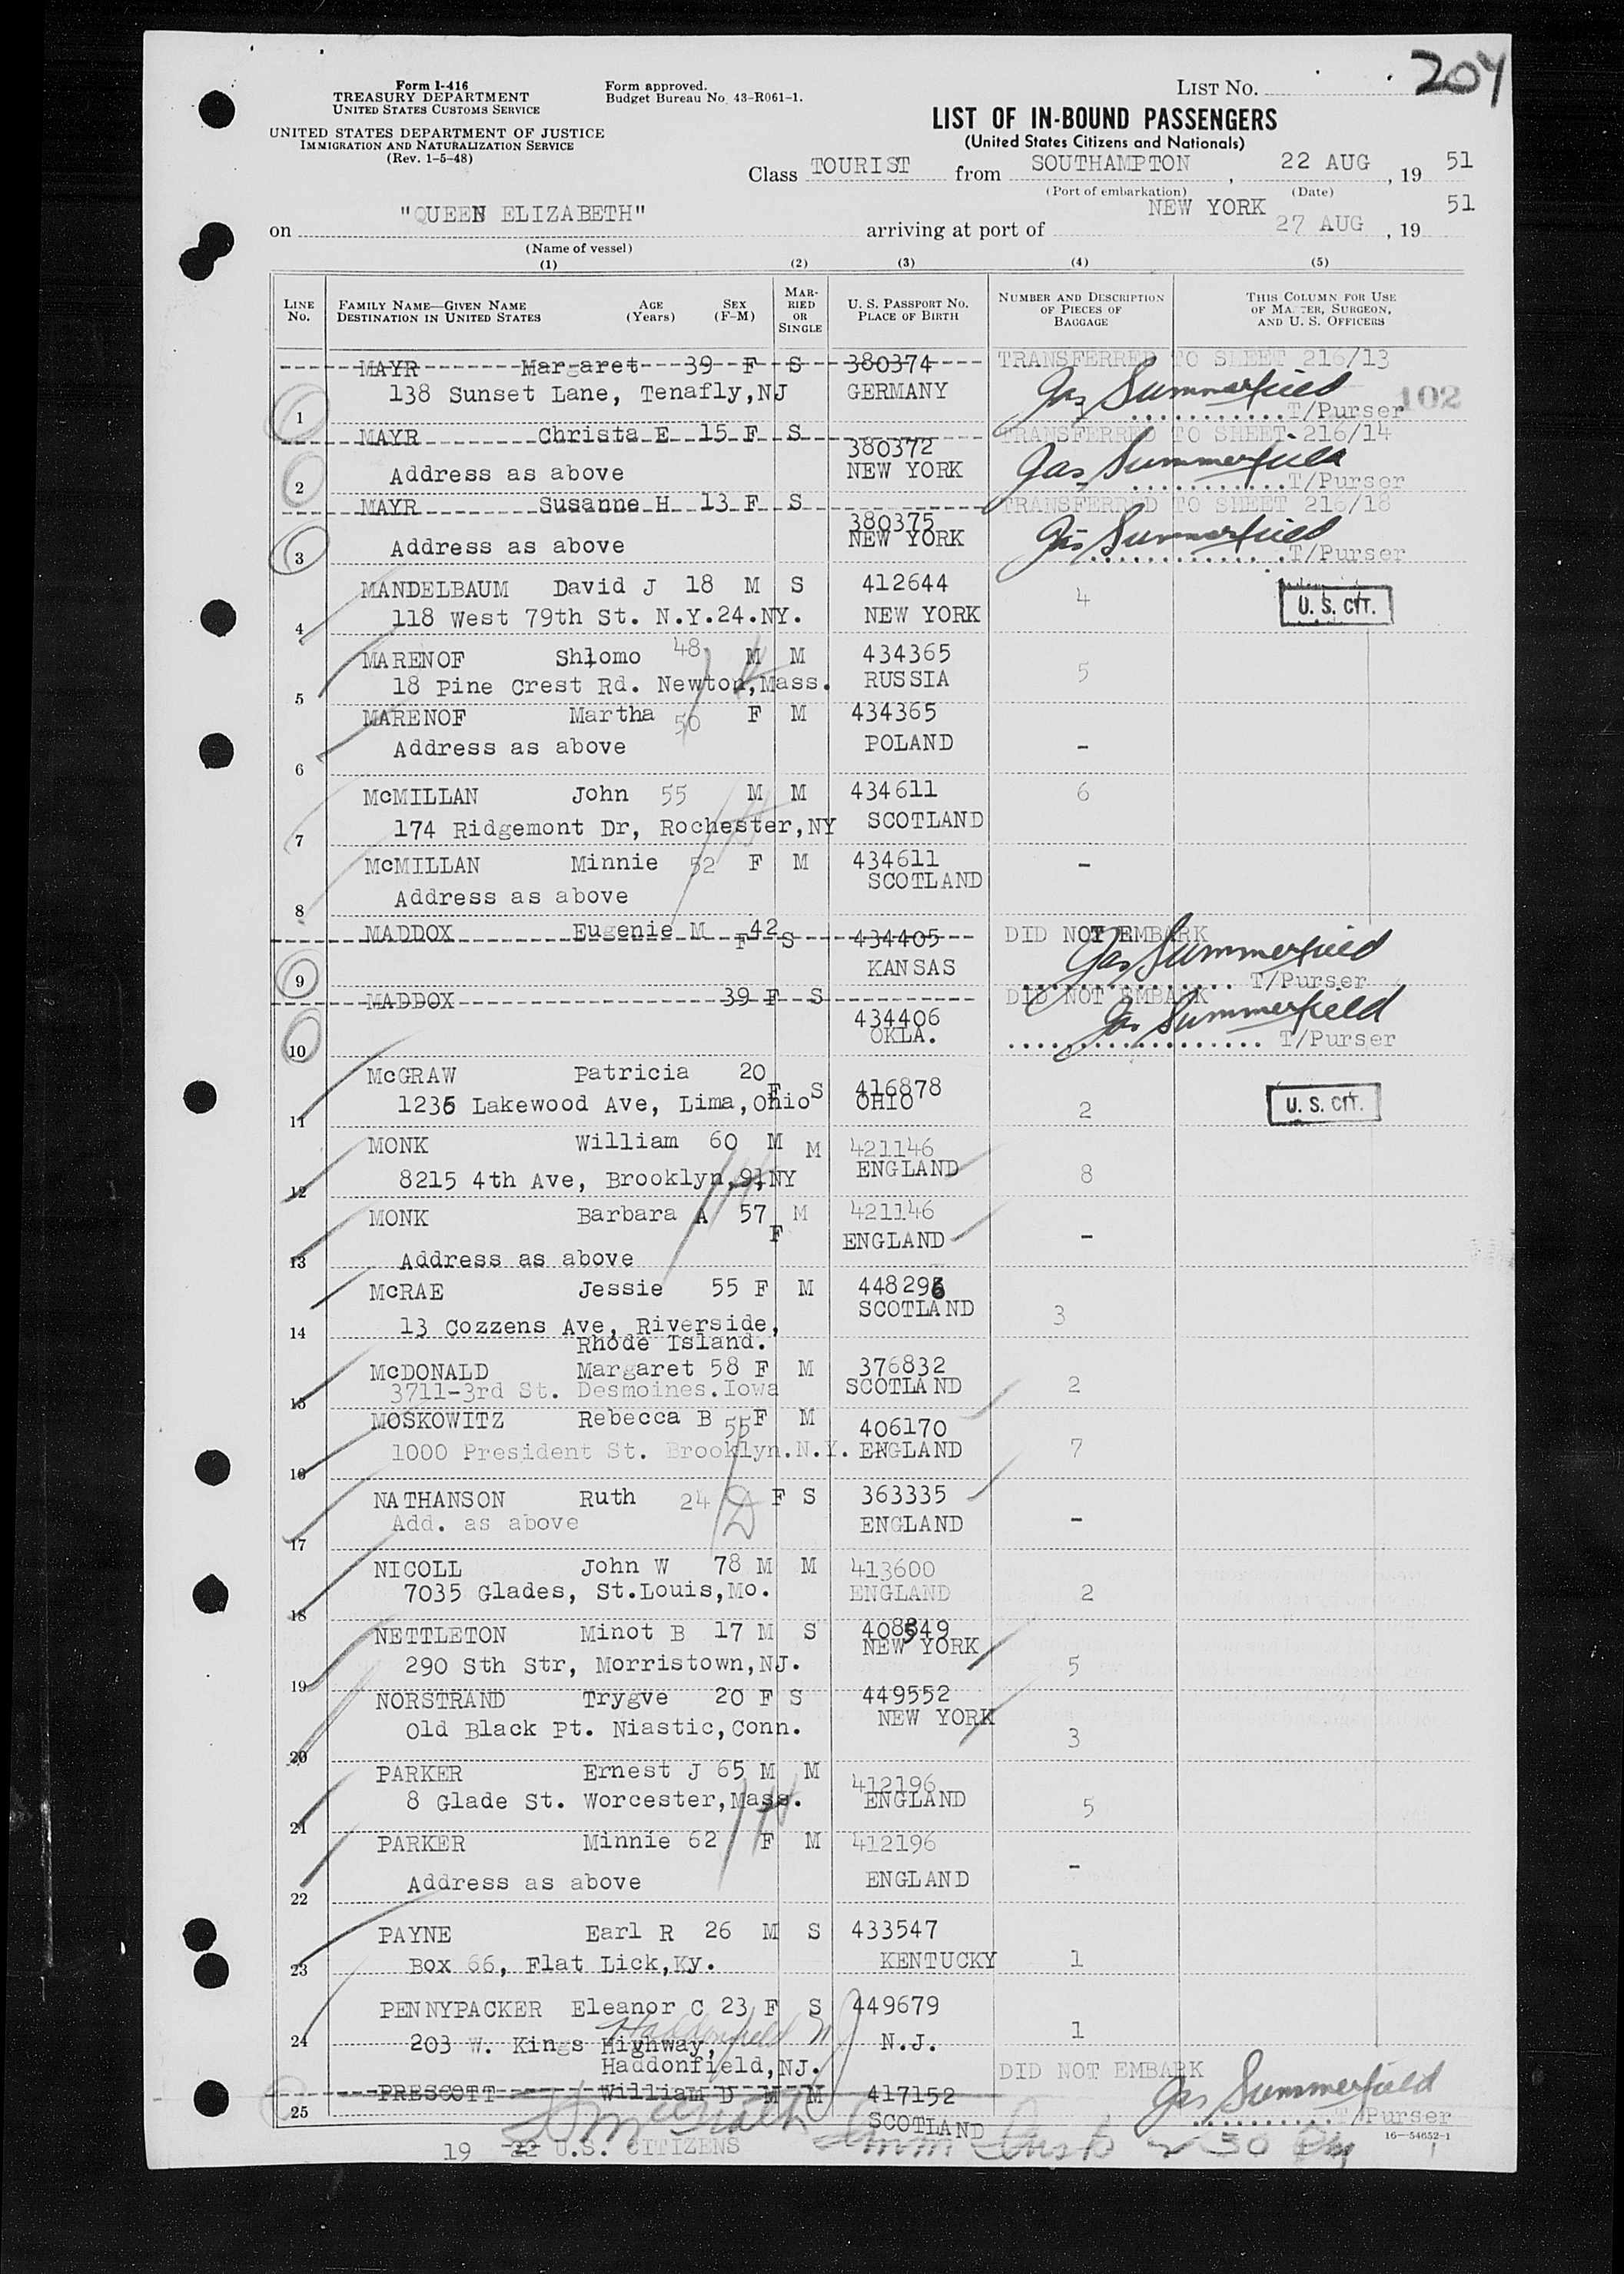 204
Form I-416
TREASURY DEPARTMENT
UNITED STATES CUSTOMS SERVICE
UNITED STATES DEPARTMENT OF JUSTICE
IMMIGRATION AND NATURALIZATION SERVICE
(Rev. 1-5-48)
Form approved.
Budget Bureau No. 43-R061-1.
LIST NO.
LIST OF IN-BOUND PASSENGERS
(United States Citizens and Nationals)
Class TOURIST from SOUTHAMPTON, 22 AUG, 19 51
(Port of embarkation) (Date)
on "QUEEN ELIZABETH" arriving at port of NEW YORK 27 AUG, 19 51
(Name of vessel)
(1) (2) (3) (4) (5)
LINE NO. FAMILY NAME—GIVEN NAME DESTINATION IN UNITED STATES AGE (Years) SEX (F-M) MARRIED OR SINGLE U. S. PASSPORT NO. PLACE OF BIRTH NUMBER AND DESCRIPTION OF PIECES OF BAGGAGE THIS COLUMN FOR USE OF MASTER, SURGEON, AND U. S. OFFICERS
MAYR Margaret 39 F S 380374 TRANSFERRED TO SHEET 216/13
138 Sunset Lane, Tenafly,NJ GERMANY Jas Summerfield 102
1 T/Purser
MAYR Christa E 15 F S 380372 TRANSFERRED TO SHEET 216/14
Address as above NEW YORK Jas Summerfield
2 T/Purser
MAYR Susanne H 13 F S 380375 TRANSFERRED TO SHEET 216/18
Address as above NEW YORK Jas Summerfield
3 T/Purser
MANDELBAUM David J 18 M S 412644 4 U. S. CIT.
4 118 West 79th St. N.Y.24.NY. NEW YORK
MARENOF Shlomo 48 M M 434365 5
5 18 Pine Crest Rd. Newton,Mass. RUSSIA
MARENOF Martha 50 F M 434365
6 Address as above POLAND -
McMILLAN John 55 M M 434611 6
7 174 Ridgemont Dr, Rochester,NY SCOTLAND
McMILLAN Minnie 52 F M 434611 -
8 Address as above SCOTLAND
MADDOX Eugenie M 42 F S 434405 DID NOT EMBARK
9 KANSAS Jas Summerfield T/Purser
MADDOX 39 F S 434406 DID NOT EMBARK
10 OKLA. Jas Summerfield T/Purser
McGRAW Patricia 20 F S 416878
11 1236 Lakewood Ave, Lima,Ohio OHIO 2 U. S. CIT.
MONK William 60 M M 421146
12 8215 4th Ave, Brooklyn,9,NY ENGLAND 8
MONK Barbara A 57 F M 421146
13 Address as above ENGLAND -
McRAE Jessie 55 F M 448296
14 13 Cozzens Ave, Riverside, SCOTLAND 3
Rhode Island.
McDONALD Margaret 58 F M 376832
15 3711-3rd St. Desmoines.Iowa SCOTLAND 2
MOSKOWITZ Rebecca B 55 F M 406170
16 1000 President St. Brooklyn.N.Y. ENGLAND 7
NATHANSON Ruth 24 F S 363335
17 Add. as above ENGLAND -
NICOLL John W 78 M M 413600
18 7035 Glades, St.Louis,Mo. ENGLAND 2
NETTLETON Minot B 17 M S 408549
19 290 Sth Str, Morristown,NJ. NEW YORK 5
NORSTRAND Trygve 20 F S 449552
20 Old Black Pt. Niastic,Conn. NEW YORK 3
PARKER Ernest J 65 M M 412196
21 8 Glade St. Worcester,Mass. ENGLAND 5
PARKER Minnie 62 F M 412196
22 Address as above ENGLAND -
PAYNE Earl R 26 M S 433547
23 Box 66, Flat Lick,Ky. KENTUCKY 1
PENNYPACKER Eleanor C 23 F S 449679
24 203 W. Kings Highway, Haddonfield N.J. 1
Haddonfield,NJ. DID NOT EMBARK
PRESCOTT William D M M 417152 Jas Summerfield
25 SCOTLAND T/Purser
19 22 U.S. CITIZENS
16—54652-1